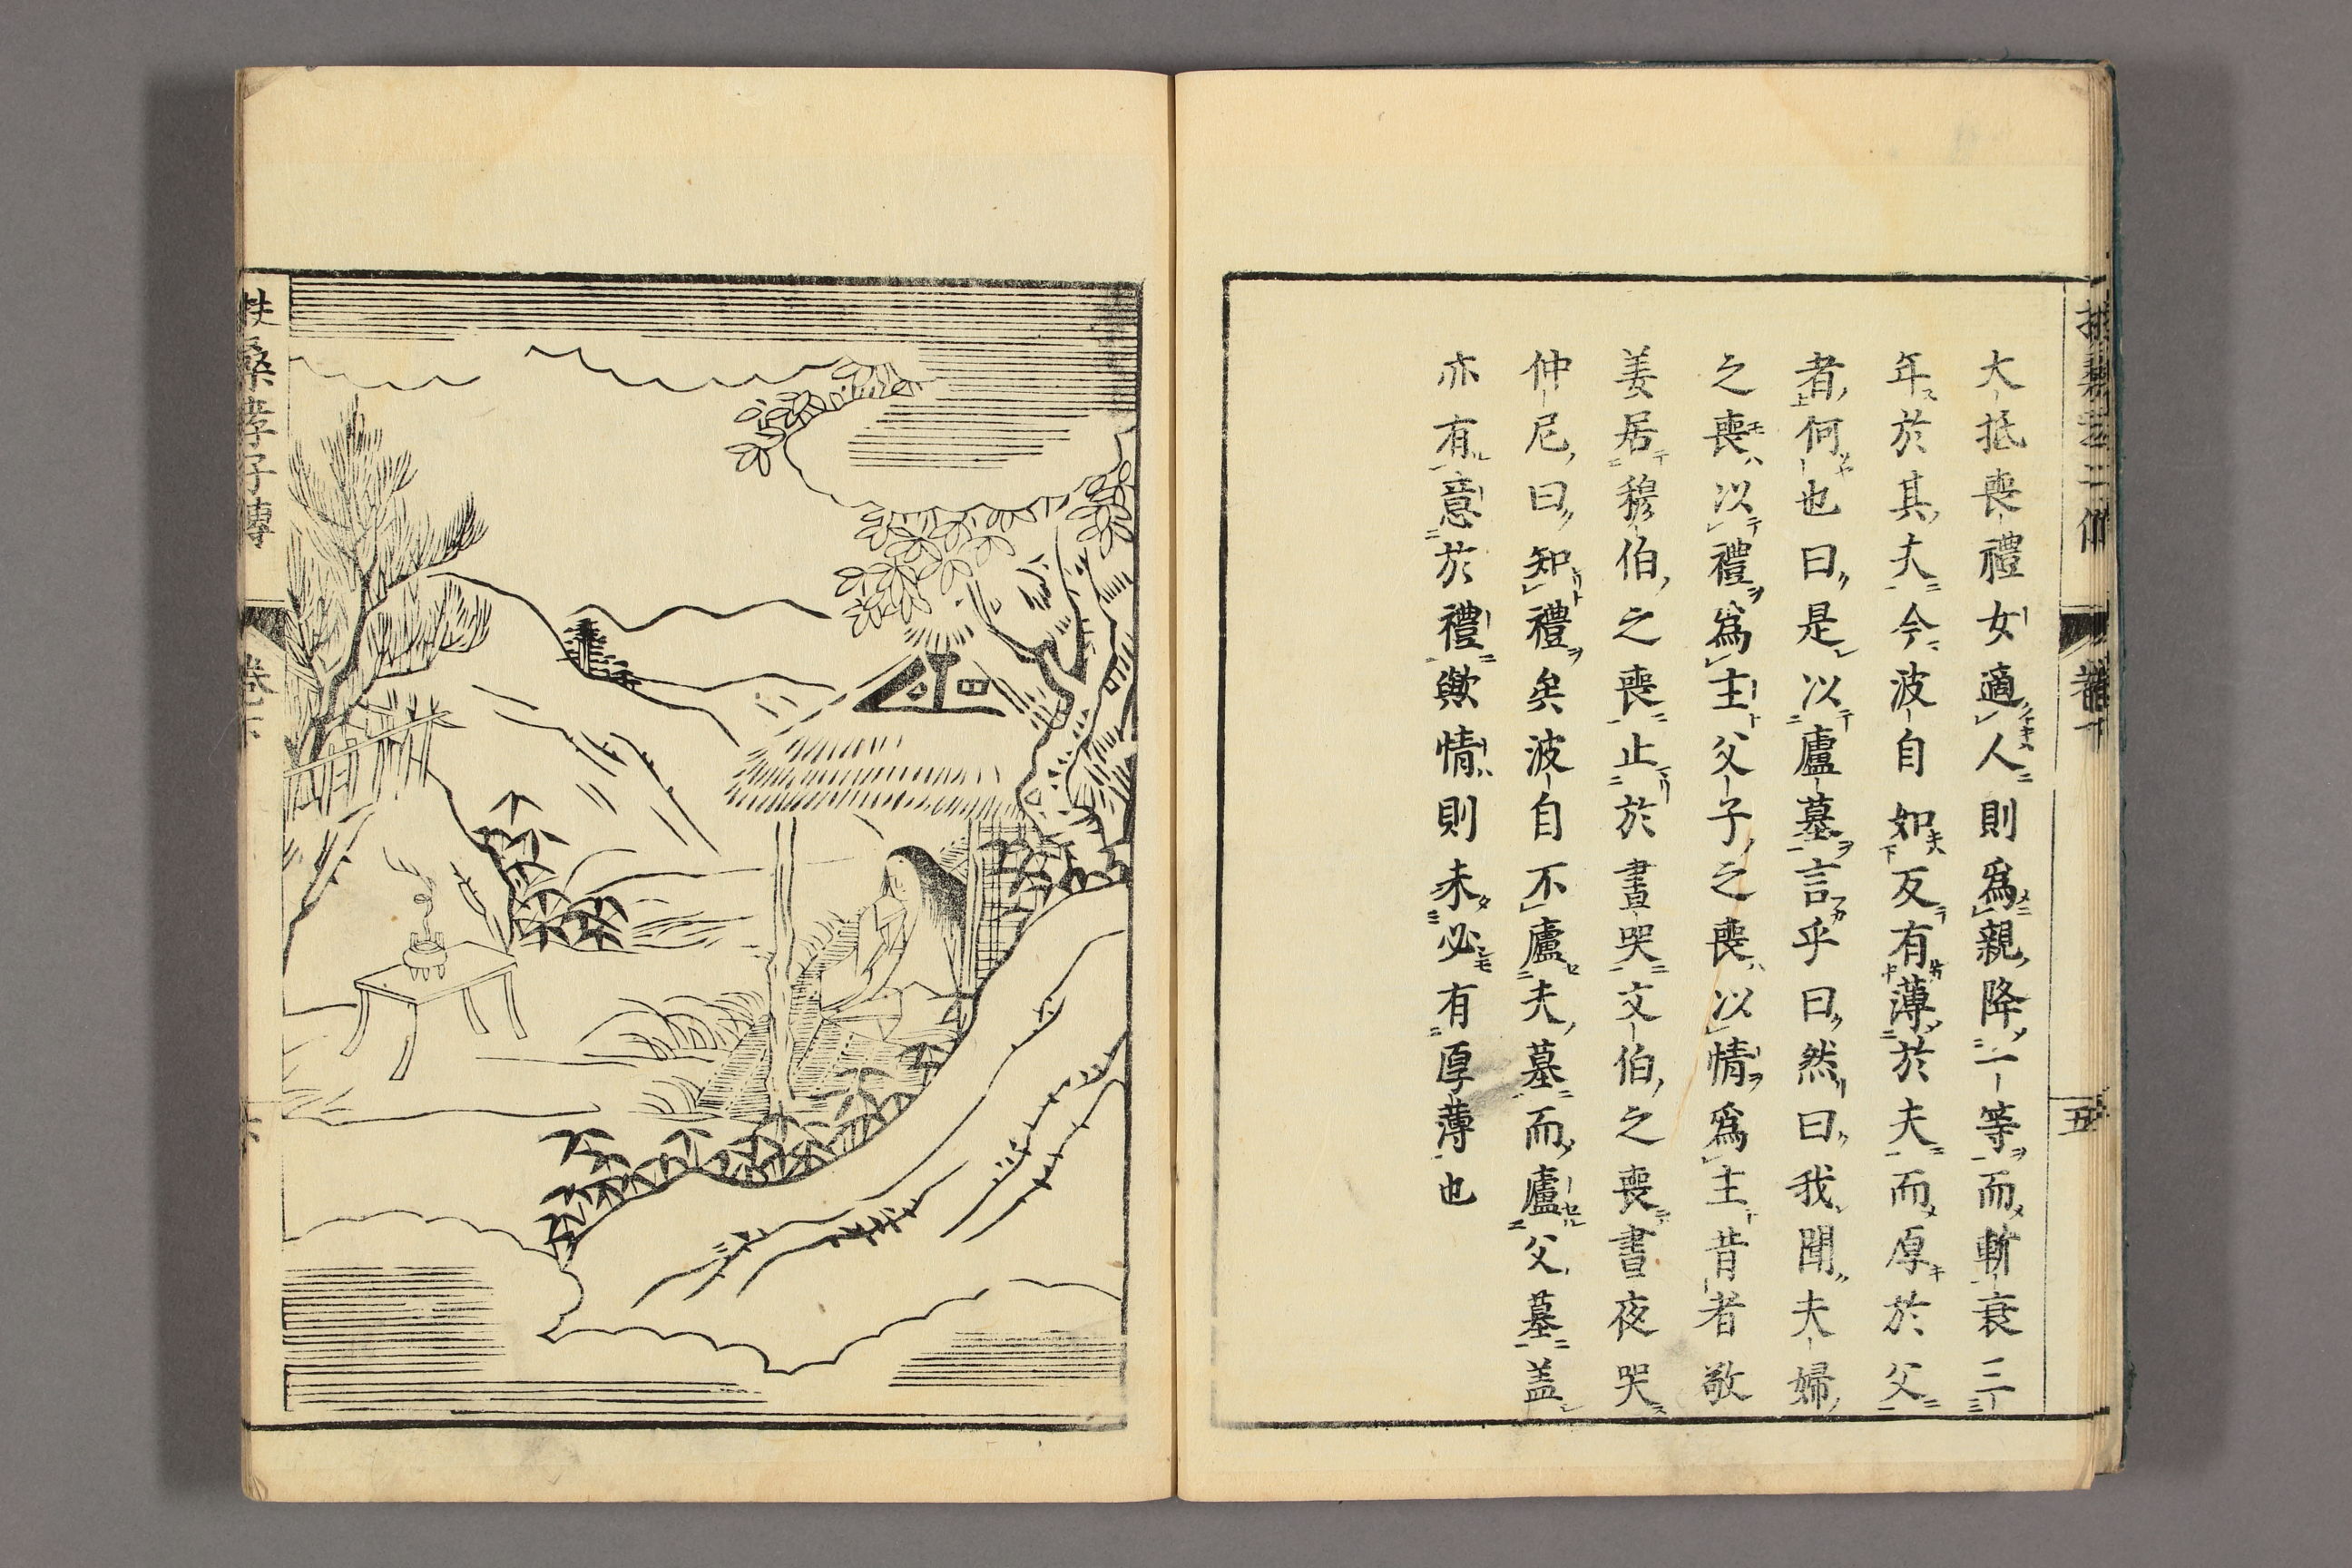 大抵喪禮女適人則爲親降一等而斬衰三
年於其夫今波自如夫反有薄於夫而厚於父
者何也曰是以廬墓言乎曰然曰我聞夫婦
之喪以禮爲主父子之喪以情爲主昔者敬
姜居穆伯之喪止於晝哭文伯之喪晝夜哭
仲尼曰知禮矣波自不廬夫墓而廬父墓盖
亦有意於禮歟情則未必有厚薄也
五
扶桑孝子傳
卷下